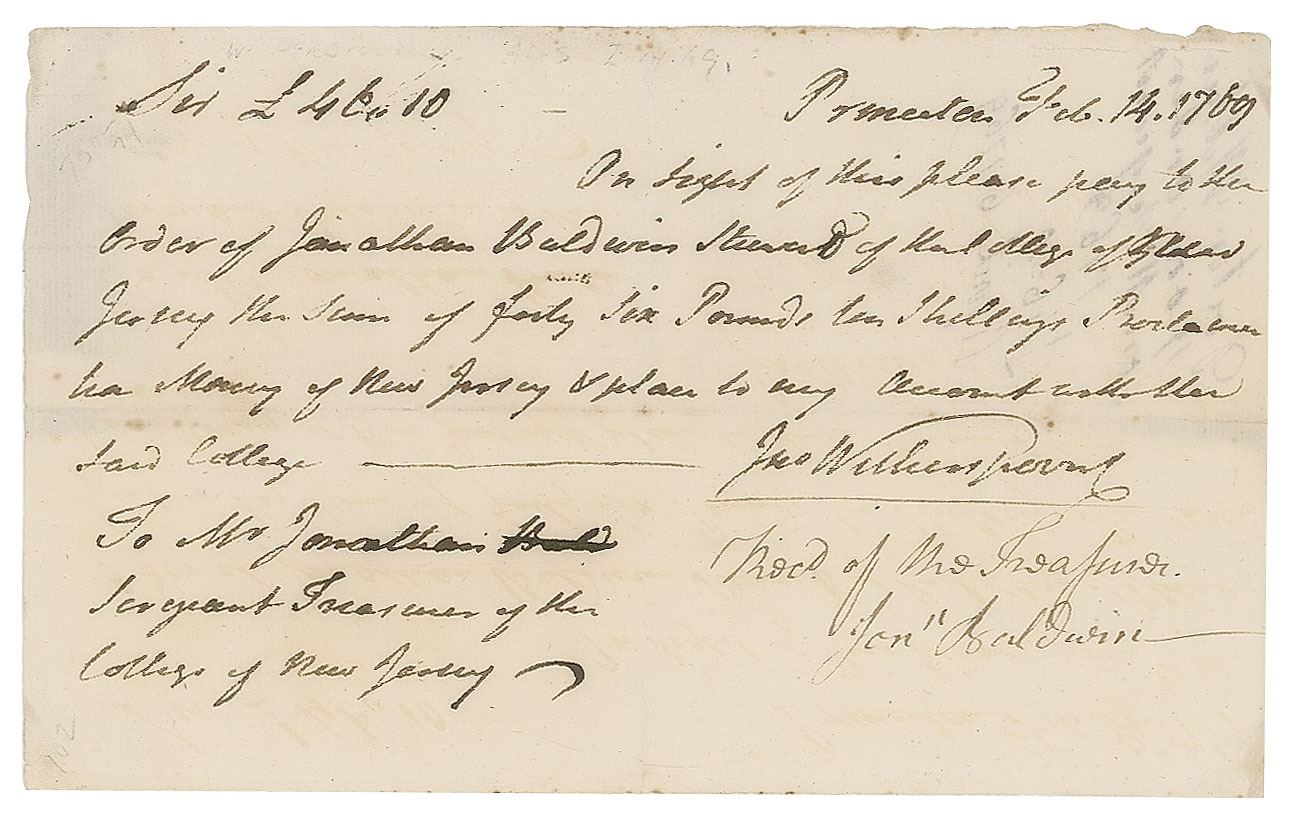 Sir £ 46,, 10 — Princeton Feb. 14. 1769
On sight of this please pay to the
Order of Jonathan Baldwin Steward of the College of New
Jersey the Sum of forty Six Pounds ten Shillings Proclama
tion Money of New Jersey & place to my Account with the
said College
Jno Witherspoon
To Mr Jonathan
Sergeant Treasurer of the
College of New Jersey
Recd. of the Treasurer.
Jon" Baldwin